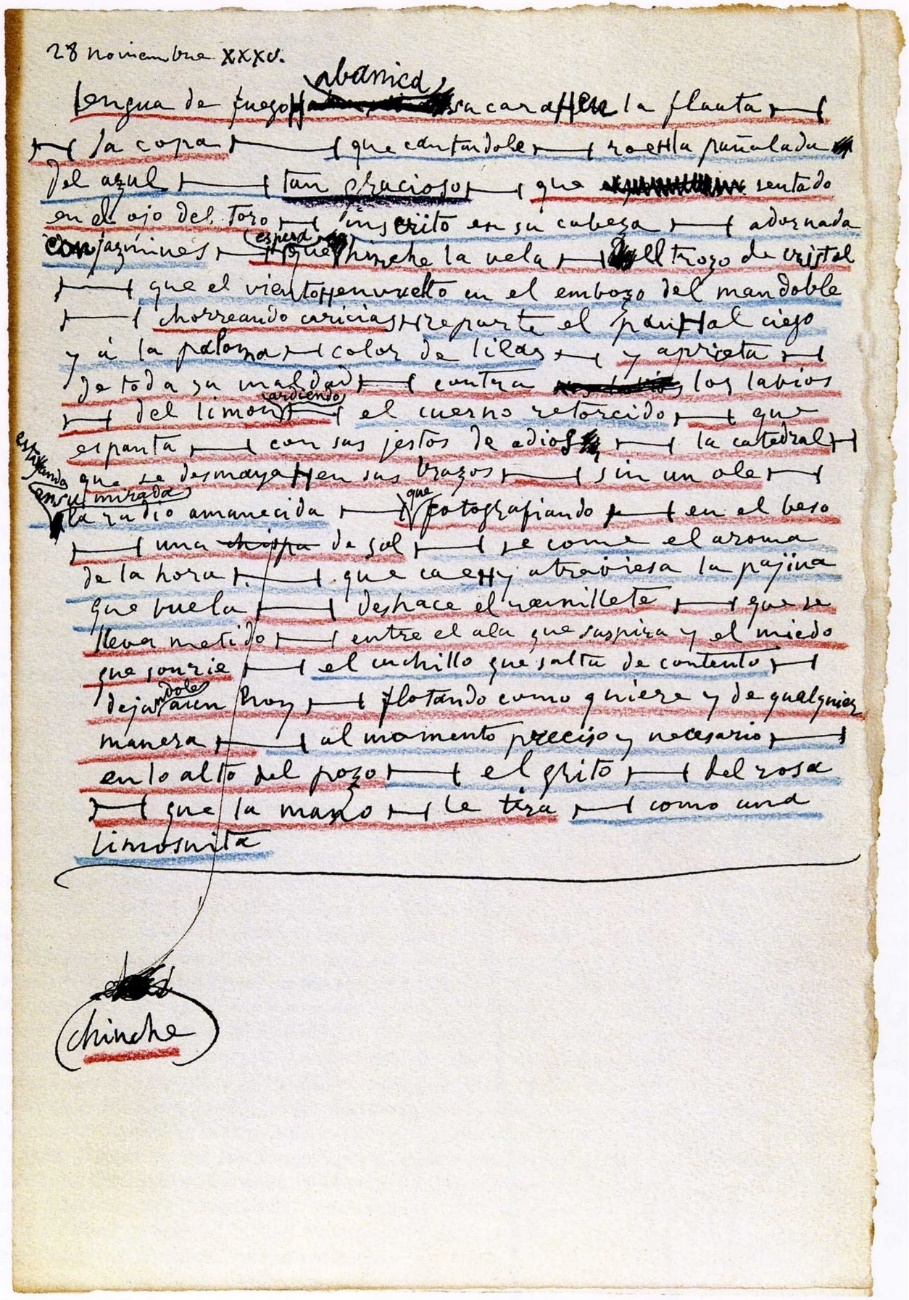 28 noviembre XXXV.
abanica
Lengua de fuego su cara en la flauta
la copa que cantandole roe la puñalada
del azul tan gracioso que sentado
en el ojo del toro inscrito en su cabeza adornada
con jazmines espera que hinche la vela el trozo de cristal
que el viento envuelto en el embozo del mandoble
chorreando caricias reparte el pan al ciego
y a la paloma color de lilas y aprieta
de toda su maldad contra los labios
del limon ardiendo el cuerno retorcido que
espanta con sus jestos de adios la catedral
que se desmaya en sus brazos sin un ole
estallando
en su mirada
la radio amanecida que fotografiando en el beso
una chispa de sol se come el aroma
de la hora que cae y atraviesa la pajina
que vuela deshace el ramillete que se
lleva metido entre el ala que suspira y el miedo
que sonrie el cuchillo que salta de contento
dejandole aun hoy flotando como quiere y de qualquier
manera al momento preciso y necesario
en lo alto del pozo el grito del rosa
que la mano le tira como una
limosnita
chinche